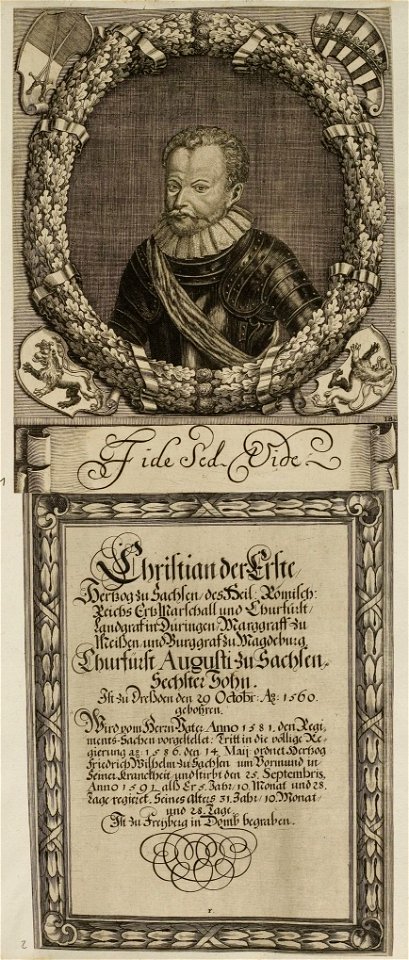 Fide Sed Vide
Christian der Erste/
Hertzog zu Sachsen/ des Heil: Römisch:
Reichs Ertz Marschall und Churfürst/
Landgraf in Düringen/ Marggraff zu
Meissen und Burggraf zu Magdeburg
Churfürst Augusti zu Sachsen,
Sechster Sohn.
Ist zu Dresden den 29 Octobr: Aō: 1560.
gebohren.
Wird vom Herrn Vater Anno 1581. den Regi-
ments-Sachen vorgestellet: Tritt in die völlige Re-
gierung aō: 1586. den 14. Maij ordnet Hertzog
Friedrich Wilhelm zu Sachsen um Vormund in
Seiner Kranckheit und stirbt den 25. Septembris
Anno 1591. alß Er 5. Jahr/ 10. Monat und 28.
Tage regiret. Seines Alters 31. Jahr/ 10. Monat
und 28. Tage.
Ist zu Freyberg in Domb begraben.
1.
2